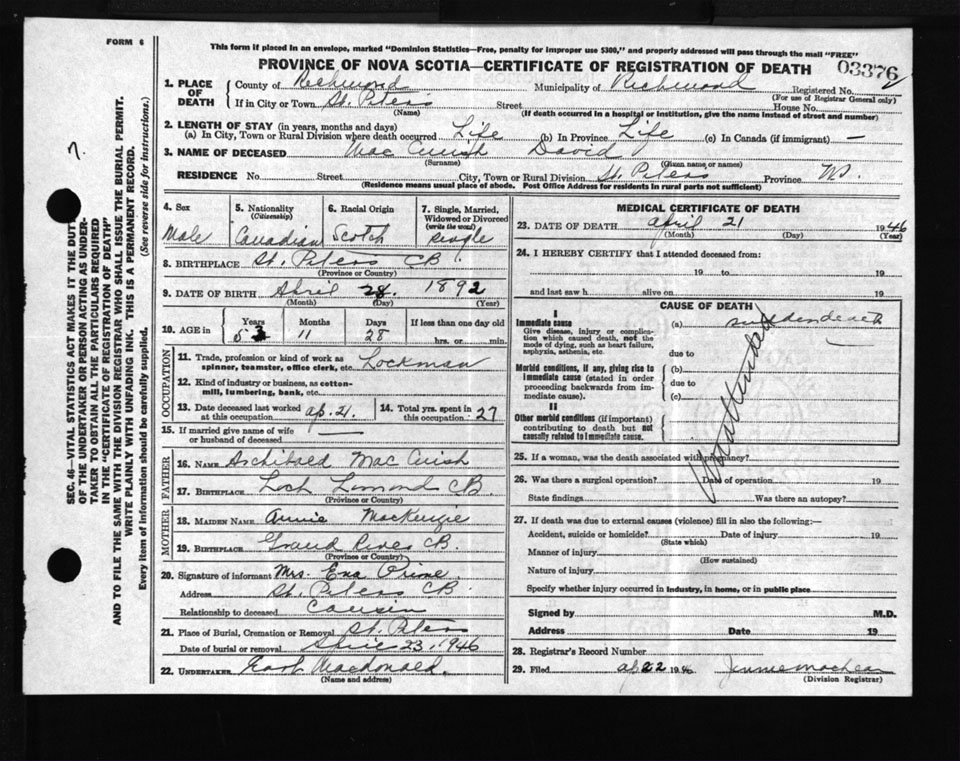 FORM 6
This form if placed in an envelope, marked "Dominion Statistics—Free, penalty for improper use $300," and properly addressed will pass through the mail "FREE"
PROVINCE OF NOVA SCOTIA—CERTIFICATE OF REGISTRATION OF DEATH
03376
1. PLACE OF DEATH
County of Richmond Municipality of Richmond Registered No.
(For use of Registrar General only)
If in City or Town St. Peters Street House No.
(Name) (If death occurred in a hospital or institution, give the name instead of street and number)
2. LENGTH OF STAY (in years, months and days)
(a) In City, Town or Rural Division where death occurred Life (b) In Province Life (c) In Canada (if immigrant) —
3. NAME OF DECEASED Mac Cuish David
(Surname) (Given name or names)
RESIDENCE No. Street City, Town or Rural Division St. Peters Province NS.
(Residence means usual place of abode. Post Office Address for residents in rural parts not sufficient)
4. Sex
Male
5. Nationality
(Citizenship)
Canadian
6. Racial Origin
Scotch
7. Single, Married, Widowed or Divorced
(write the word)
Single
8. BIRTHPLACE St. Peters CB
(Province or Country)
9. DATE OF BIRTH April 28. 1892
(Month) (Day) (Year)
10. AGE in
Years Months Days If less than one day old
53 11 28 hrs. or min.
OCCUPATION
11. Trade, profession or kind of work as spinner, teamster, office clerk, etc. Lockman
12. Kind of industry or business, as cotton-mill, lumbering, bank, etc.
13. Date deceased last worked at this occupation ap. 21. 14. Total yrs. spent in this occupation 27
15. If married give name of wife or husband of deceased —
FATHER
16. NAME Archibald Mac Cuish
17. BIRTHPLACE Loch Lomond CB
(Province or Country)
MOTHER
18. MAIDEN NAME Annie MacKenzie
19. BIRTHPLACE Grand River CB.
(Province or Country)
20. Signature of informant Mrs. Eva Prime
Address St. Peters CB.
Relationship to deceased Cousin
21. Place of Burial, Cremation or Removal St. Peters
Date of burial or removal April 23, 1946
22. UNDERTAKER Earl MacDonald.
(Name and address)
MEDICAL CERTIFICATE OF DEATH
23. DATE OF DEATH April 21 1946
(Month) (Day) (Year)
24. I HEREBY CERTIFY that I attended deceased from:
19 to 19
and last saw h alive on 19
CAUSE OF DEATH
I
Immediate cause
Give disease, injury or complication which caused death, not the mode of dying, such as heart failure, asphyxia, asthenia, etc.
(a) sudden death
due to
Morbid conditions, if any, giving rise to immediate cause (stated in order proceeding backwards from immediate cause).
(b)
due to
(c)
II
Other morbid conditions (if important) contributing to death but not causally related to immediate cause.
25. If a woman, was the death associated with pregnancy?
26. Was there a surgical operation? Date of operation 19
State findings Was there an autopsy?
27. If death was due to external causes (violence) fill in also the following:—
Accident, suicide or homicide? Date of injury 19
(State which)
Manner of injury
(How sustained)
Nature of injury
Specify whether injury occurred in industry, in home, or in public place
Signed by M.D.
Address Date 19
28. Registrar's Record Number
29. Filed ap 22 1946 Jennie MacLean
(Division Registrar)
7.
SEC. 46—VITAL STATISTICS ACT MAKES IT THE DUTY
OF THE UNDERTAKER OR PERSON ACTING AS UNDER-
TAKER TO OBTAIN ALL THE PARTICULARS REQUIRED
IN THE "CERTIFICATE OF REGISTRATION OF DEATH"
AND TO FILE THE SAME WITH THE DIVISION REGISTRAR WHO SHALL ISSUE THE BURIAL PERMIT.
WRITE PLAINLY WITH UNFADING INK. THIS IS A PERMANENT RECORD.
Every item of information should be carefully supplied. (See reverse side for instructions.)